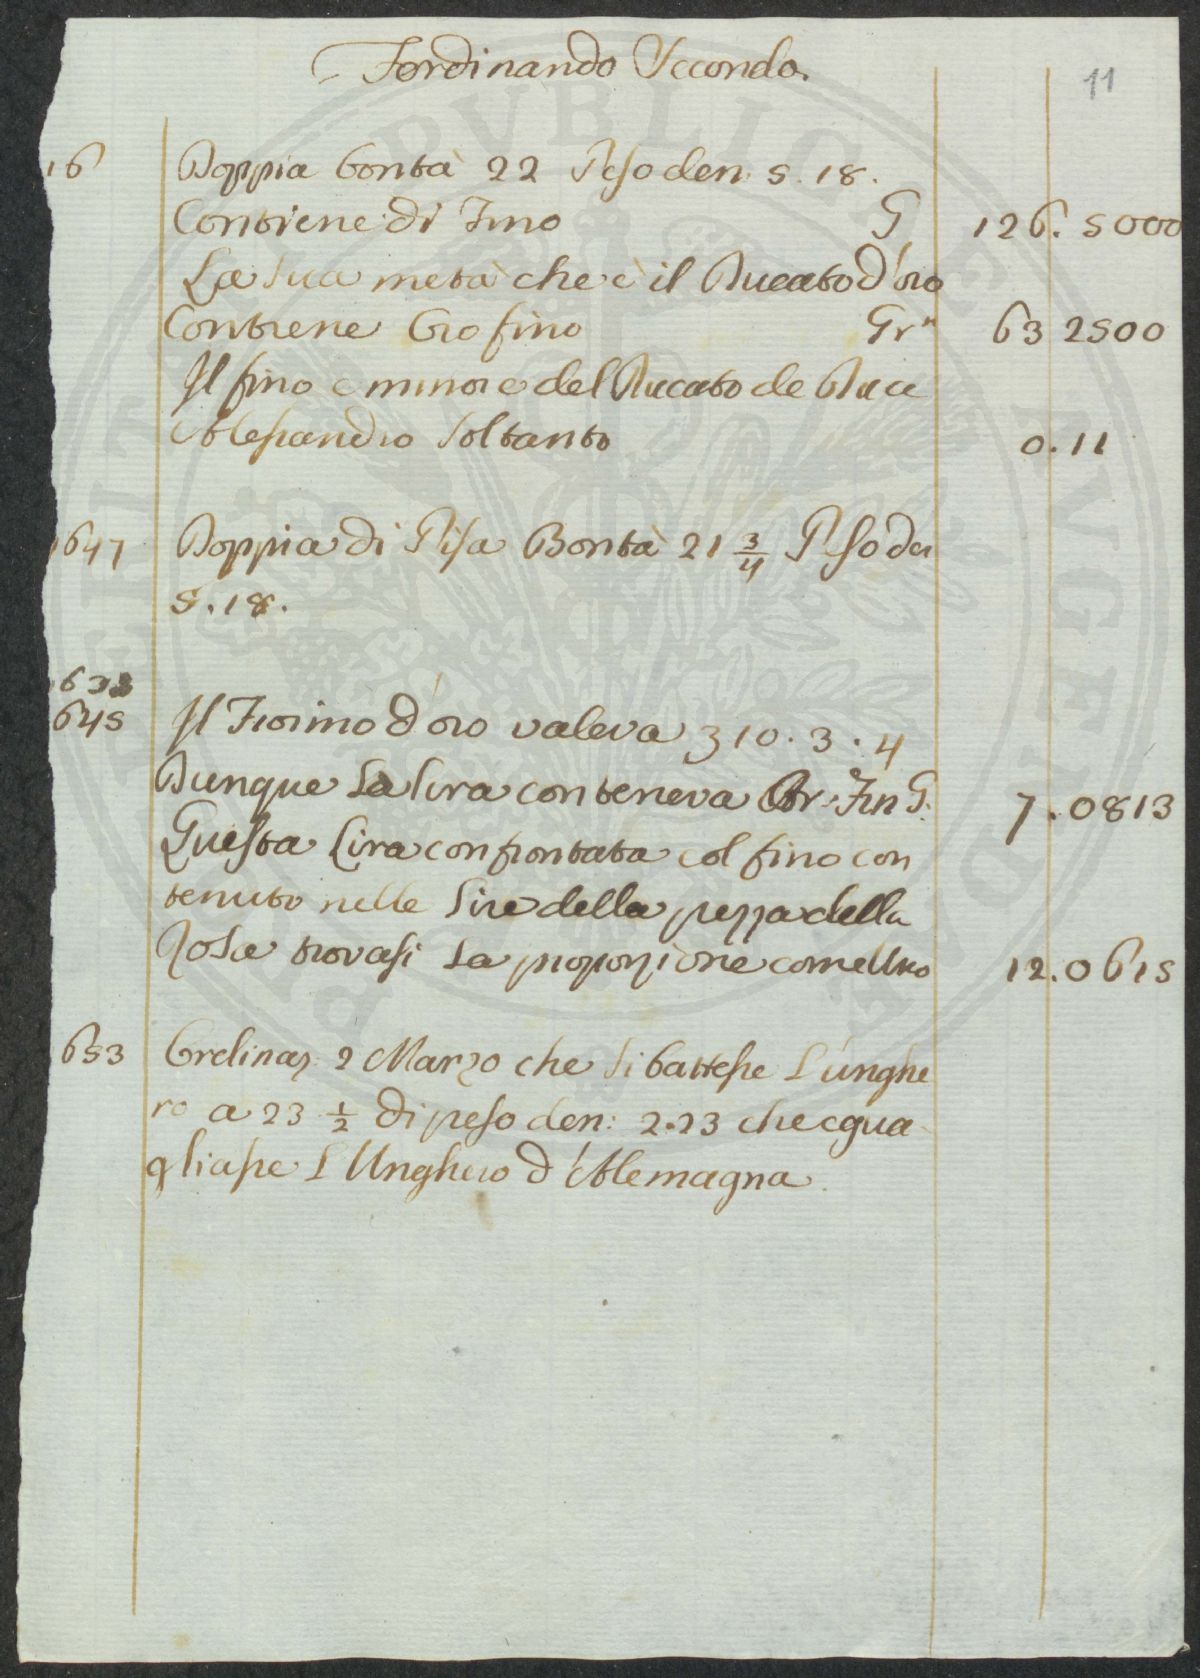 Ferdinando Secondo.
11
16 Doppia bontà 22 Peso den. 5. 18.
Contiene di Fino G 126. 5000
La sua metà che è il Ducato d'oro
Contiene Oro fino Gr.n 63 2500
Il fino è minore del Ducato de Duca
Alessandro soltanto 0.11
1647 Doppia di Pisa Bontà 21 3/4 Peso den
5.18.
1633
645 Il Fiorino d'oro valeva 10. 3. 4
Dunque la lira conteneva Or. Fin G. 7.0813
Questa Lira confrontata col fino con
tenuto nelle Lire della pezza della
Rosa trovasi la proporzione come Uno 12.0615
653 Ordinaz. 2 Marzo che si battesse L'unghe
ro a 23 1/2 di peso den: 2.23 che egua
gliasse L'Unghero d'Alemagna.